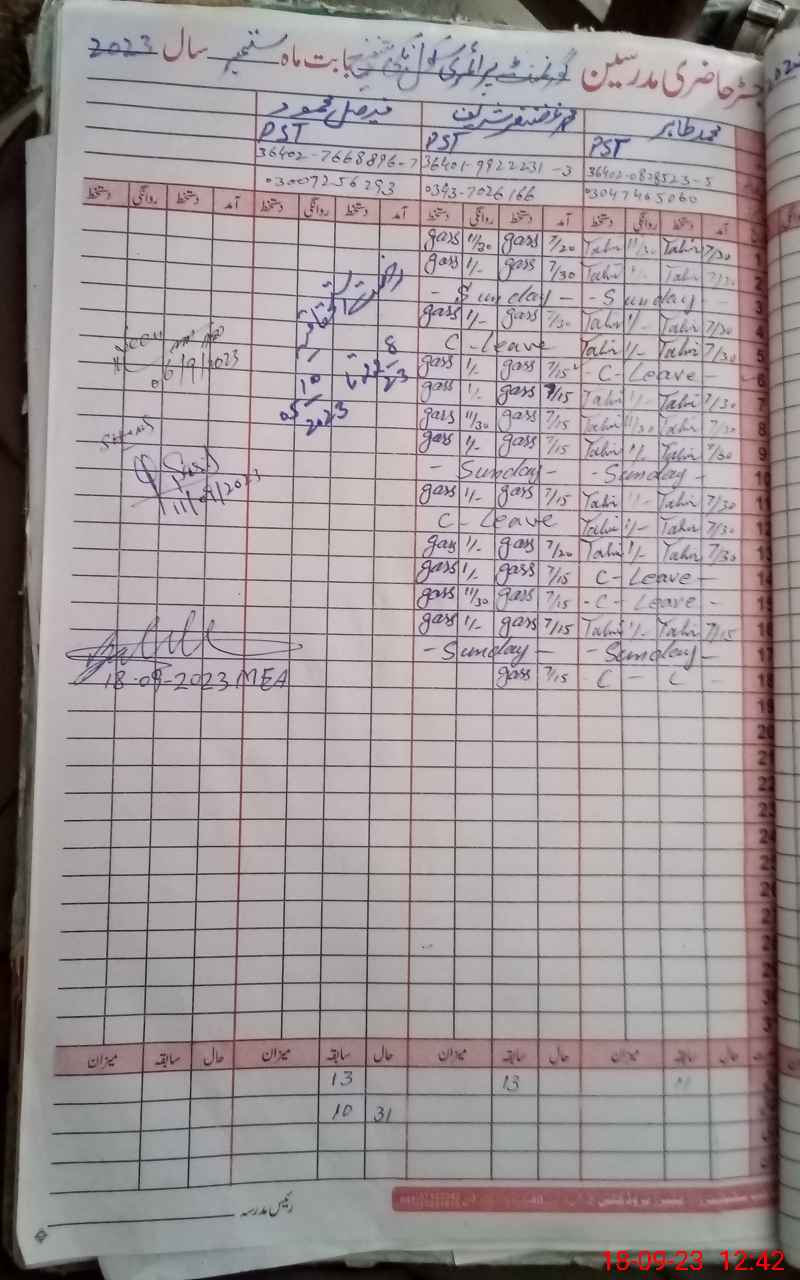 رجسٹر حاضری مدرسین گورنمنٹ پرائمری سکول بابت ماہ ستمبر سال 2023
محمد طاہر محمد غضنفر شریف فیصل محمود
PST PST PST
36402-0828523-5 36401-9922231-3 36402-7668896-7
03047465060 0343-7026166 03007256293
آمد دستخط روانگی دستخط آمد دستخط روانگی دستخط آمد دستخط روانگی دستخط آمد دستخط روانگی دستخط
1 7/30 Tahir 11/30 Tahir 7/20 gass 11/30 gass
2 7/30 Tahir 1/- Tahir 7/30 gass 1/- gass
3 - Sunday - - Sunday -
4 7/30 Tahir 1/- Tahir 7/30 gass 1/- gass
5 7/30 Tahir 1/- Tahir C-Leave
6 -C-Leave- 7/15 gass 1/- gass
7 7/30 Tahir 1/- Tahir 7/15 gass 1/- gass
8 7/30 Tahir 11/30 Tahir 7/15 gass 11/30 gass
9 7/30 Tahir 1/- Tahir 7/15 gass 1/- gass
10 - Sunday - - Sunday -
11 7/30 Tahir 1/- Tahir 7/15 gass 1/- gass
12 7/30 Tahir 1/- Tahir C-Leave
13 7/30 Tahir 1/- Tahir 7/20 gass 1/- gass
14 C-Leave- 7/15 gass 1/- gass
15 -C-Leave- 7/15 gass 11/30 gass
16 7/15 Tahir 1/- Tahir 7/15 gass 1/- gass
17 - Sunday - - Sunday -
18 - C - L - 7/15 gass
19
20
21
22
23
24
25
26
27
28
29
30
31
8
10
05
2023
6/9/2023
11/09/2023
18-09-2023 MEA
حال سابقہ میزان حال سابقہ میزان حال سابقہ میزان حال سابقہ میزان
11 13 13
31 10
رئیس مدرسہ
18-09-23 12:42